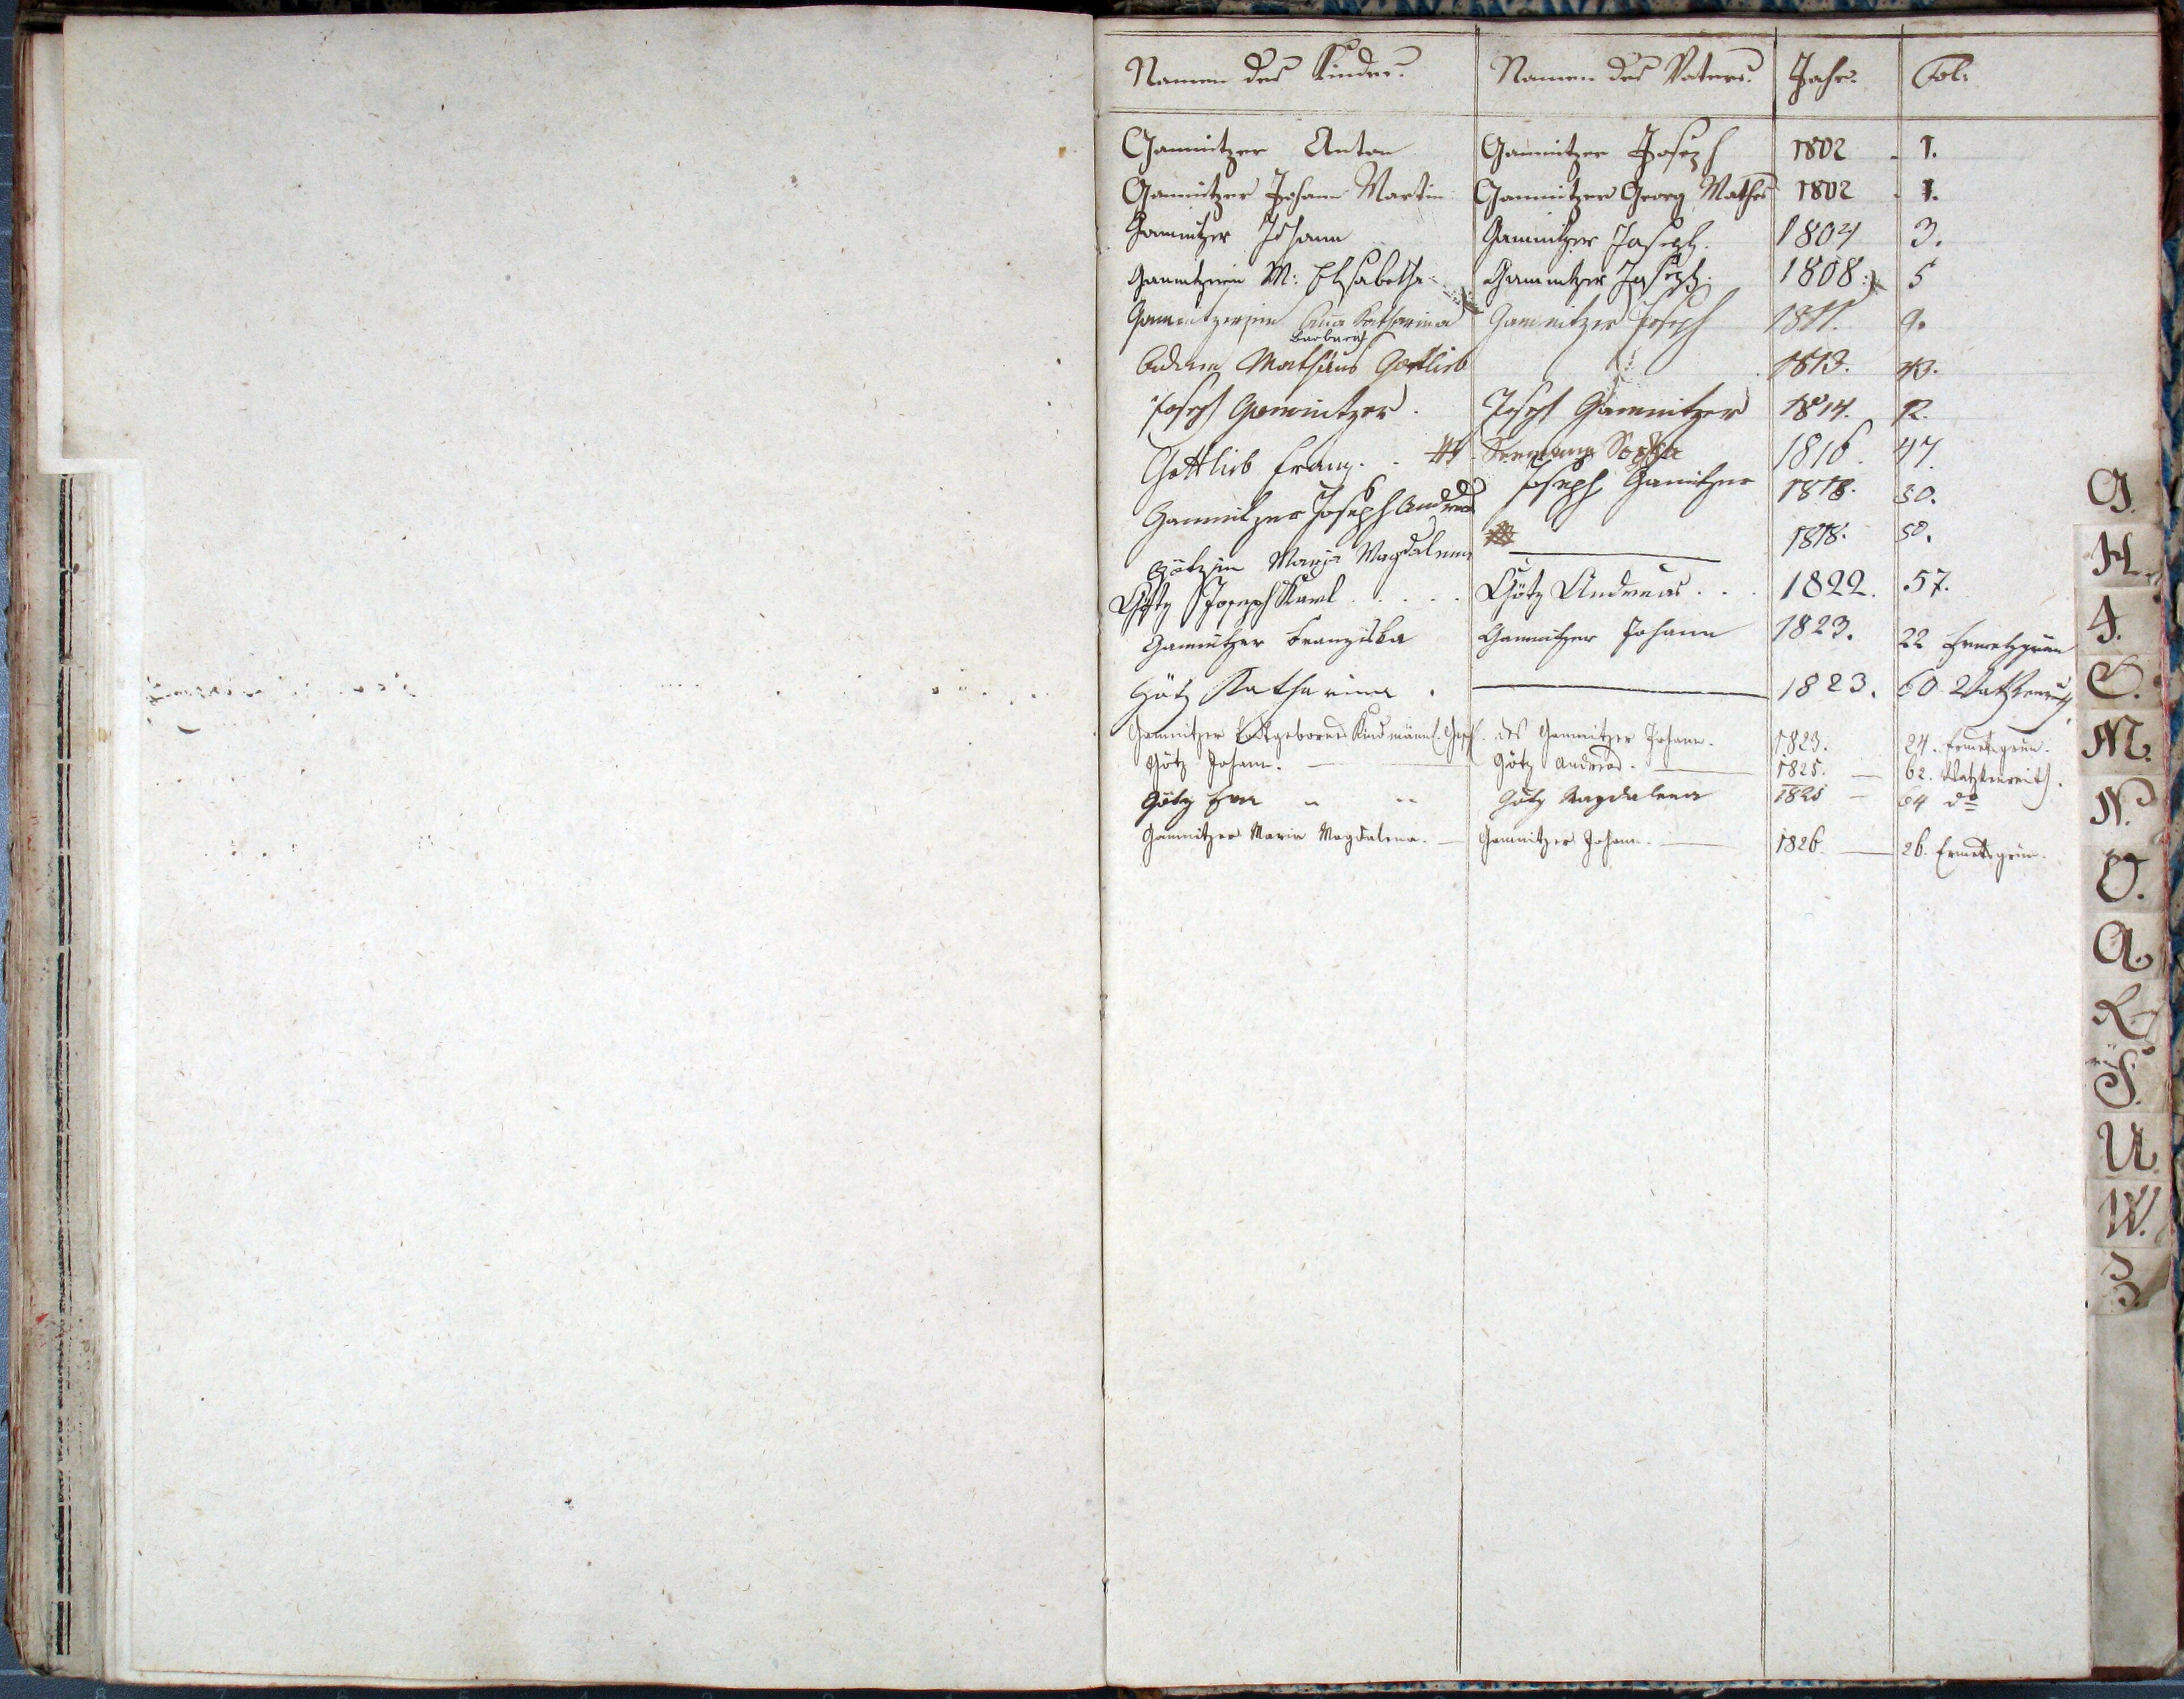 Namen des Kindes. Namen des Vaters. Jahr. Fol:
Gamnitzer Anton Gamnitzer Joseph 1802 - 1.
Gamnitzer Johann Martin Gamnitzer Georg Mathes 1802 - 1.
Gamnitzer Johann Gamnitzer Joseph. 1804 3.
Gamnitzerin M: Elisabetha Gamnitzer Joseph. 1808. 5
Gamnitzerin Anna Katharina Gamnitzer Joseph 1811. 9.
Barbara
Adam Mathäus Gottlieb 1813.
Joseph Gamnitzer. Joseph Gamnitzer 1814. 12.
Gottlieb Franz. Sophia 1816. 47.
Gamnitzer Joseph Andreas Joseph Gamnitzer 1818. 50.
Götzin Maria Magdalena 1818. 50.
Götz Joseph Karl Götz Andreas 1822. 57.
Gamnitzer Franziska Gamnitzer Johann 1823. 22 Ermetsgrün
Götz Katharina. 1823. 60 Watzkenreuth
Gamnitzer Todtgebornes Kind männl. Gesch. des Gamnitzer Johann. 1823. 24. Ermetsgrün.
Götz Johann. Götz Andreas. 1825. 62. Watzkenreuth.
Götz Eva Götz Magdalena 1825 64 do
Gamnitzer Maria Magdalena. Gamnitzer Johann. 1826. 26. Ermetsgrün.
G.
H.
J.
M.
N.
O.
Q.
R.
S.
U.
W.
Z.